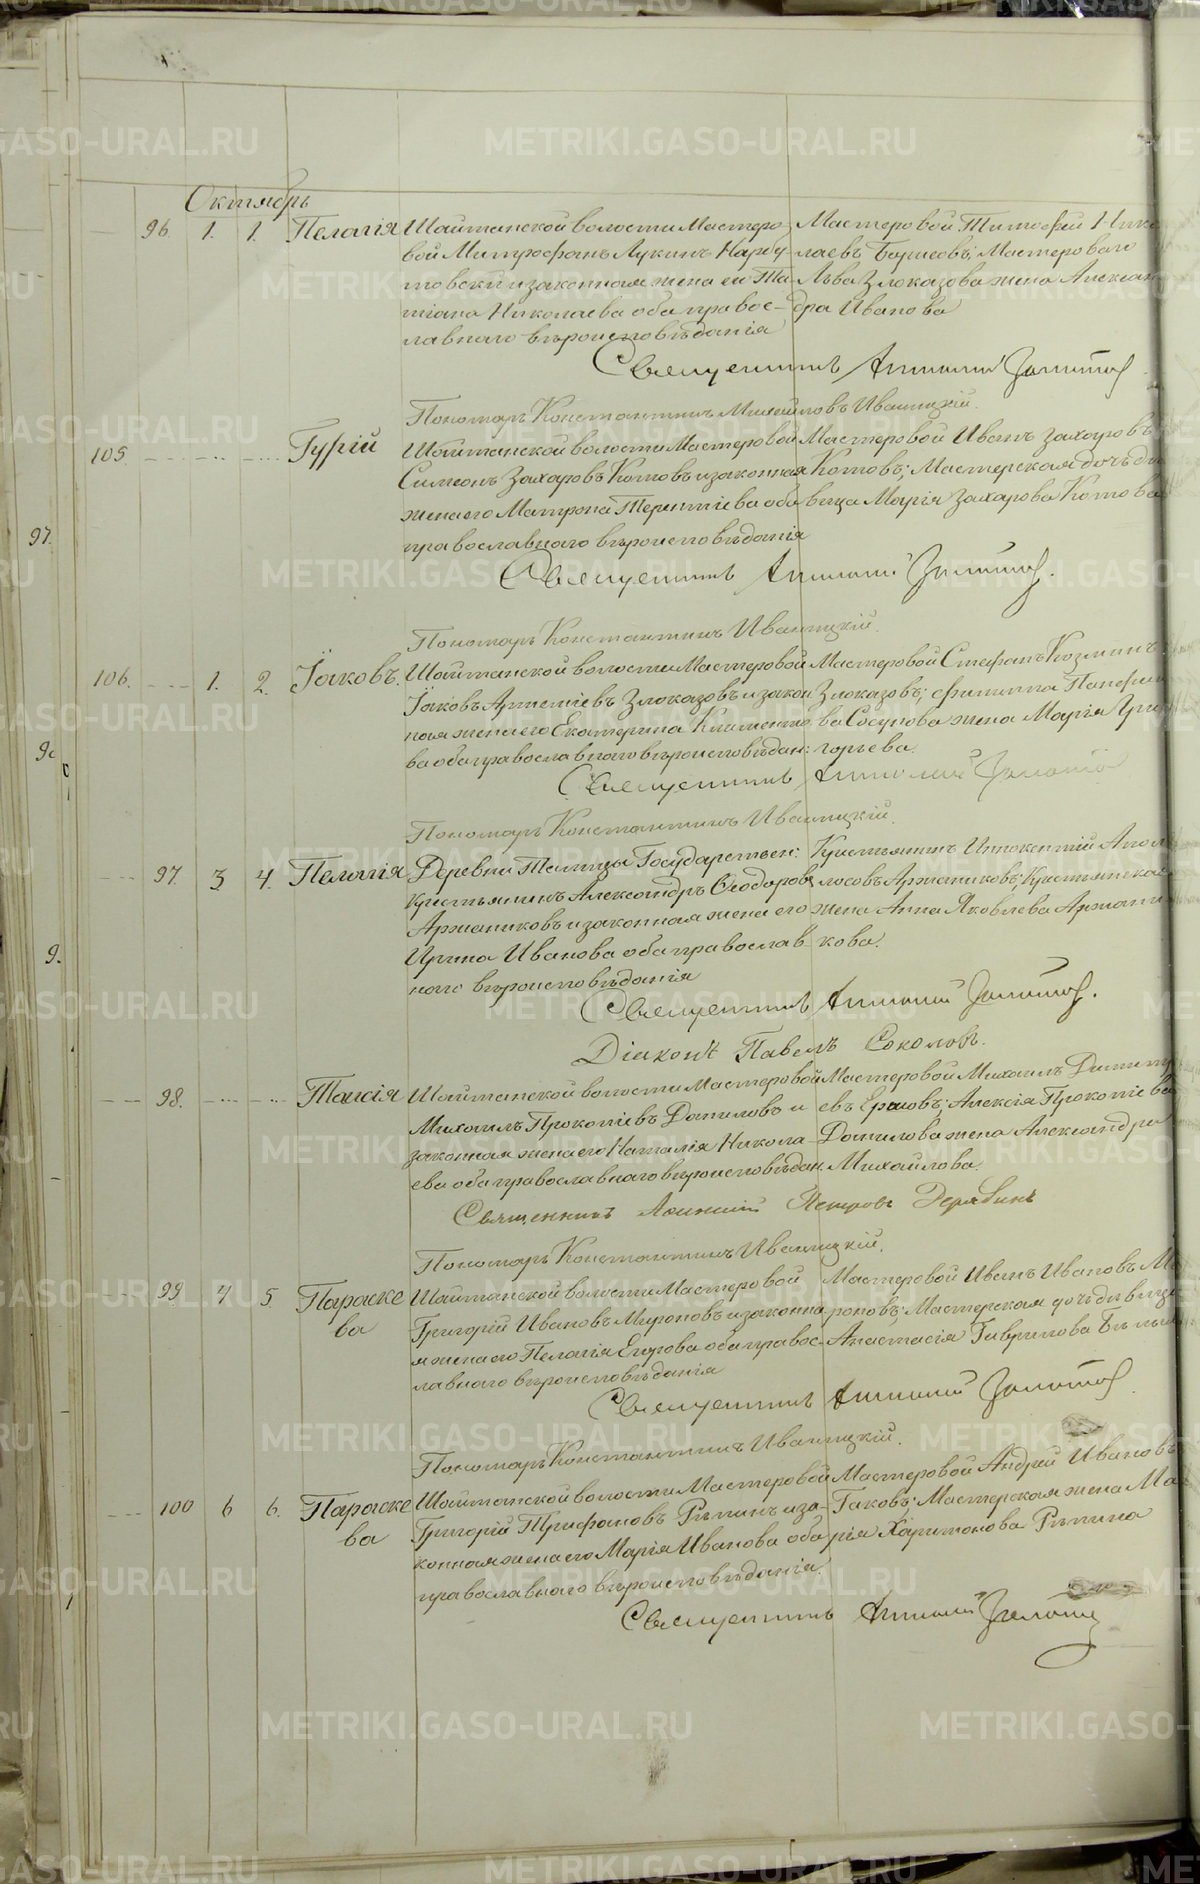 Октябрь
96. 1. 1. Пелагія
Шайтанской волости Мастеро-
вой Митрофанъ Лукинъ Нарбу-
товскій и законная жена его Та-
тіана Николаева оба правос-
лавнаго вѣроисповѣданія
Мастеровой Тимофей Нико
лаевъ Борисовъ; Мастероваго
Льва Злоказова жена Алексан
дра Иванова
Священникъ
Пономарь Константинъ Михайловъ Иваницкій.
105. Гурій
Шайтанской волости Мастеровой
Симеонъ Захаровъ Котовъ и законная
жена его Матрона Терентіева оба
православнаго вѣроисповѣданія
Мастеровой Иванъ Захаровъ
Котовъ; Мастерская дочь дѣ
вица Марія Захарова Котова
Священникъ
Пономарь Константинъ Иваницкій.
106. 1. 2. Іаковъ.
Шайтанской волости Мастеровой
Іаковъ Артеміевъ Злоказовъ и закон
ная жена его Екатерина Климентье
ва оба православнаго вѣроисповѣдан:
Мастеровой Стефанъ Козминъ
Злоказовъ; Филиппа Панфило
ва Сосунова жена Марія Гри
горьева.
Священникъ
Пономарь Константинъ Иваницкій.
97. 3 4. Пелагія
Деревни Талицы Государствен:
крестьянинъ Александръ Ѳеодоровъ
Аржаниковъ и законная жена его
Ирина Иванова оба православ-
наго вѣроисповѣданія
Крестьянинъ Иннокентій Апол
лосовъ Аржаниковъ; Крестьянская
жена Анна Яковлева Аржани
кова.
Священникъ
Діаконъ Павелъ Соколовъ.
98. Таисія
Шайтанской волости Мастеровой
Михаилъ Прокопіевъ Даниловъ и
законная жена его Наталія Никола-
ева оба православнаго вѣроисповѣдан.
Мастеровой Михаилъ Димитр
евъ Ершовъ; Алексія Прокопіева
Данилова жена Александра
Михайлова.
Священникъ Петровъ Дерябинъ
Пономарь Константинъ Иваницкій.
99 4 5. Параске
ва
Шайтанской волости Мастеровой
Григорій Ивановъ Мироновъ и законна
я жена его Пелагія Егорова оба правос-
лавнаго вѣроисповѣданія
Мастеровой Иванъ Ивановъ Ми
роновъ; Мастерская дочь дѣвица
Анастасія Гаврилова
Священникъ
Пономарь Константинъ Иваницкій.
100 6 6. Параске
ва
Шайтанской волости Мастеровой
Григорій Трифоновъ Рѣпинъ и за-
конная жена его Марія Иванова оба
православнаго вѣроисповѣданія.
Мастеровой Андрей Ивановъ
Гаковъ; Мастерская жена Ма
рія Харитонова Рѣпина
Священникъ
97.
METRIKI.GASO-URAL.RU